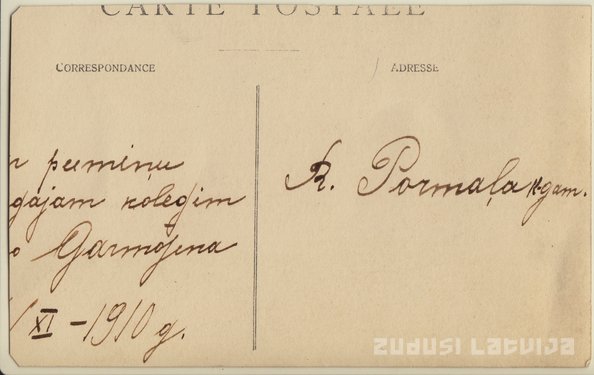 CARTE POSTALE
CORRESPONDANCE
ADRESSE
r peemiņu
gājam kolegim
o Garmojena
/XI – 1910 g.
R. Pormaļa k-gam.
ZUDUSI LATVIJA